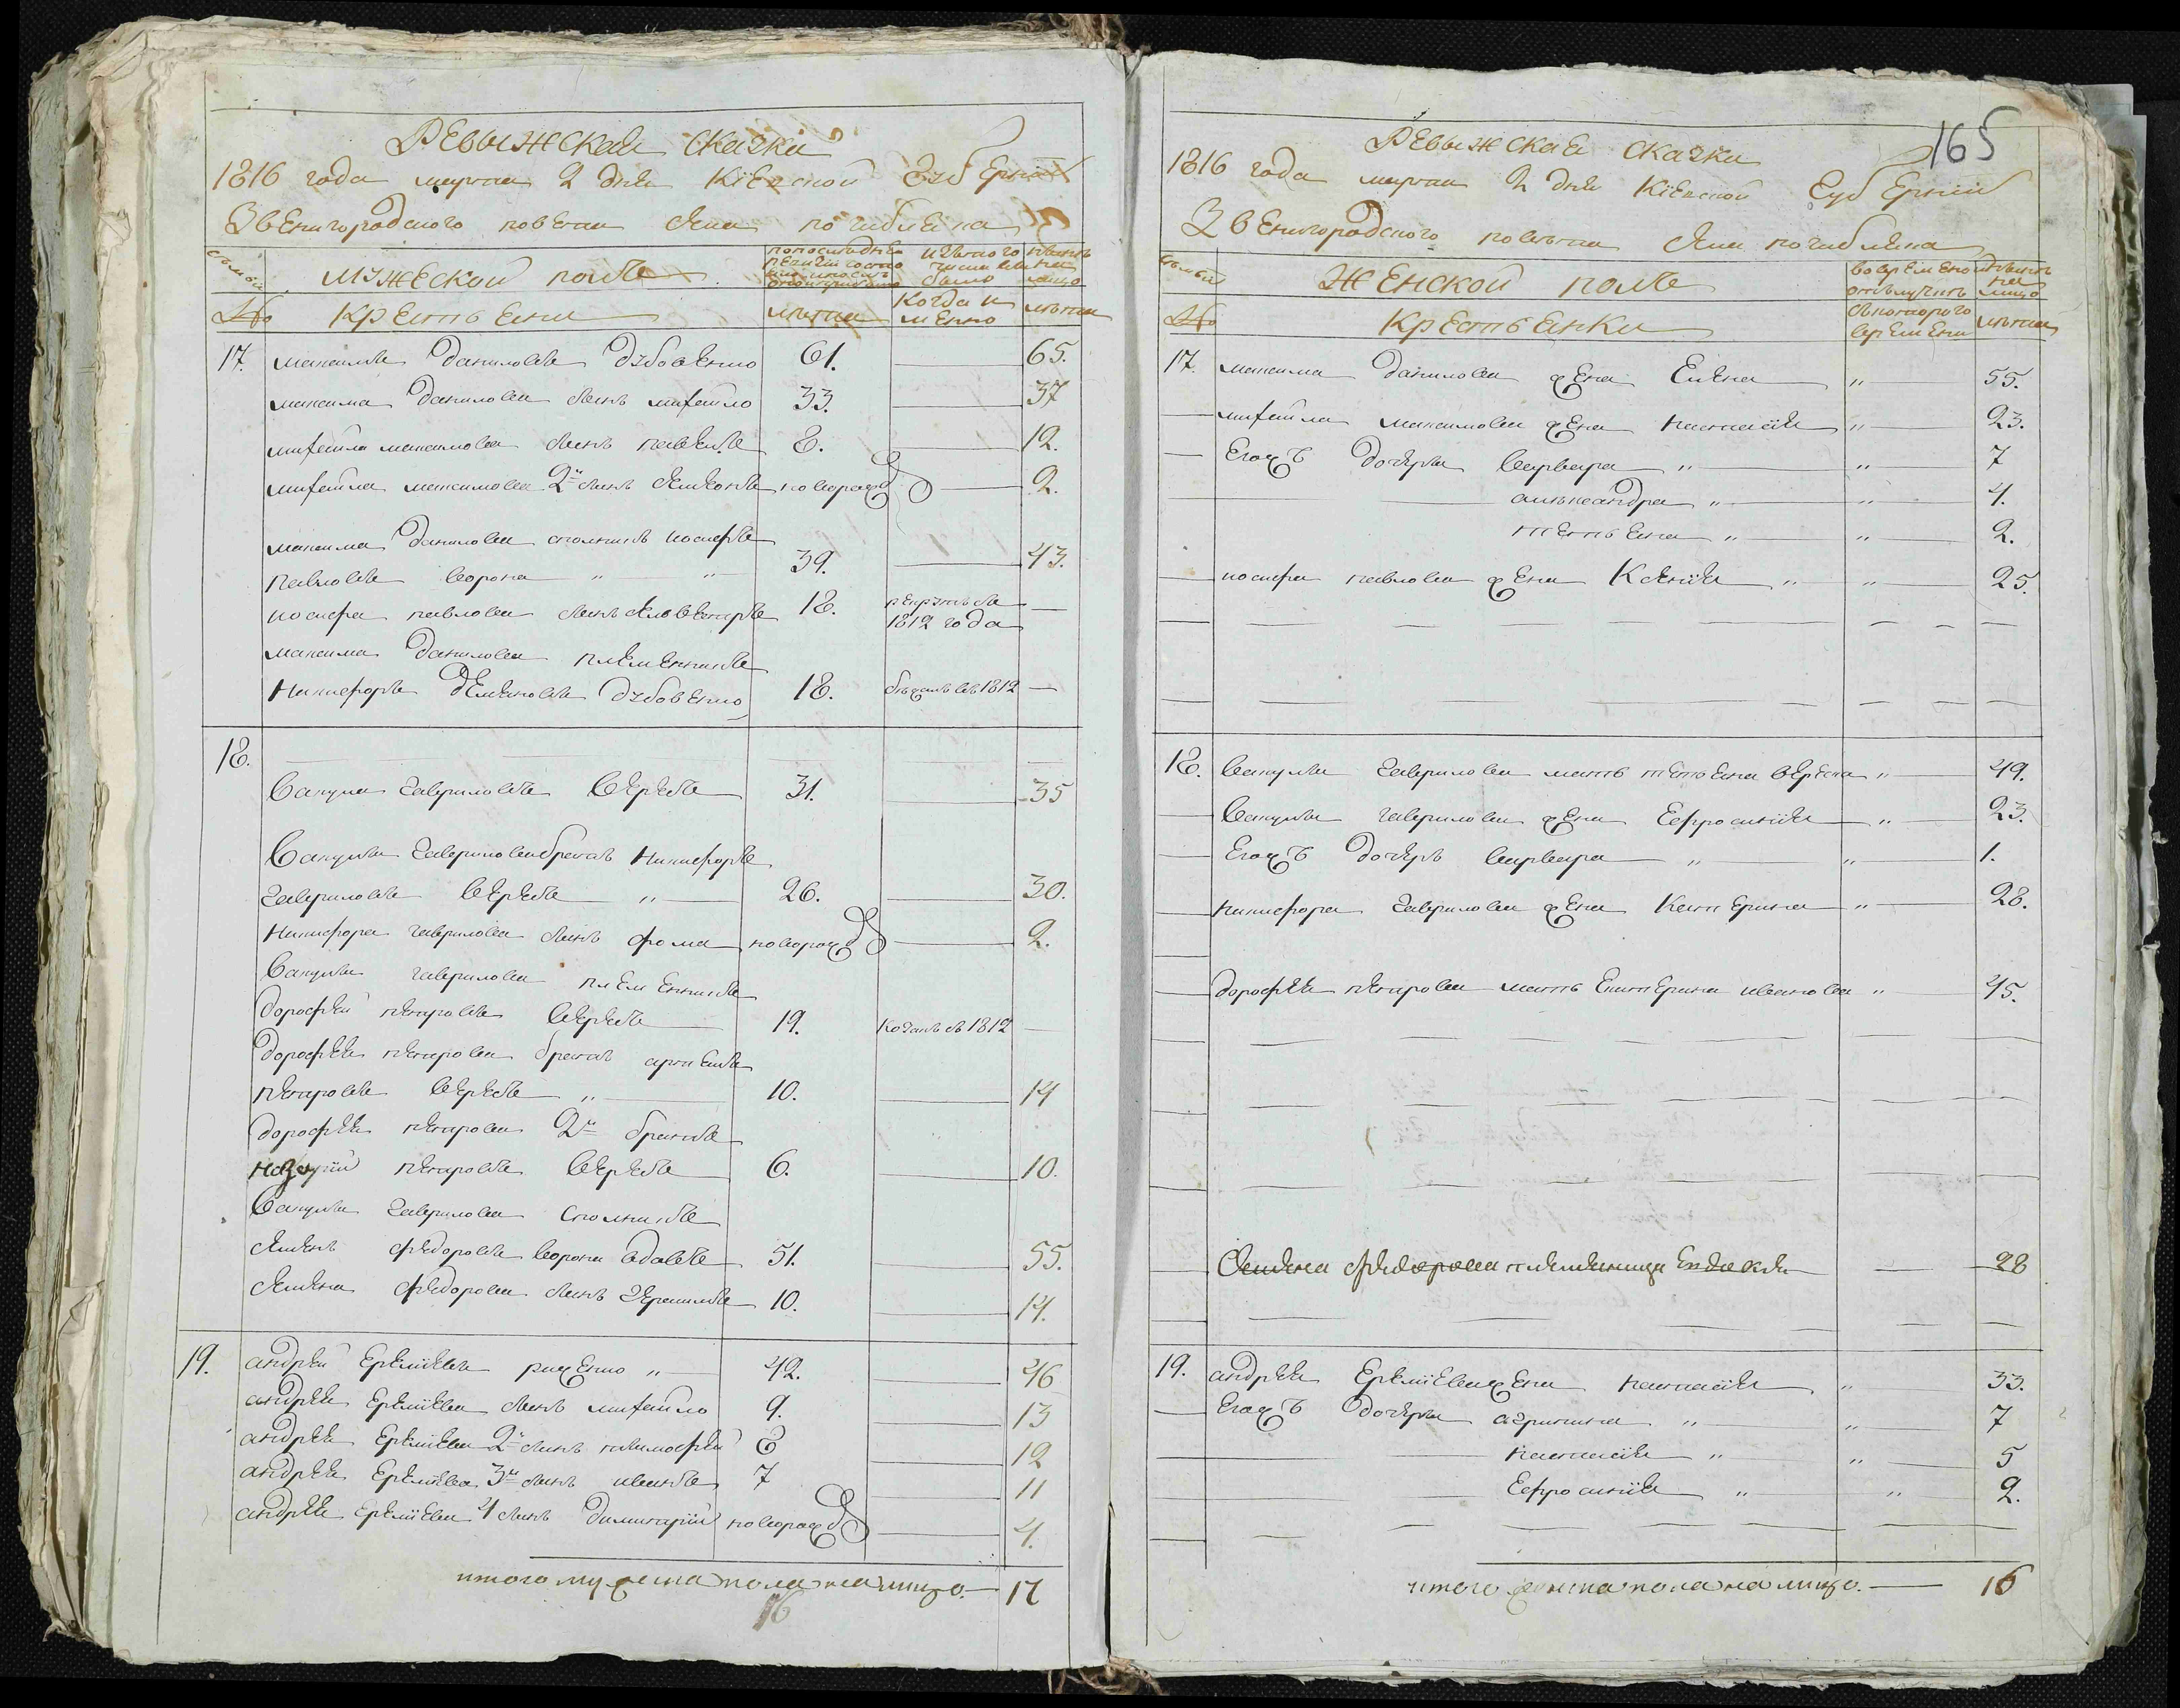 Ревыжская сказка
1816 года марта 2 дня Кіевской Губерніи
Звенигородского повета села погибляка
семьи
мужеской полъ
по последней ревизіи состояло и после оной прибыло
изъ того числа выбыло
ныне на лицо
№
крестьяне
лета
когда имянно
лета
17. максимъ даниловъ дубовенко 61. 65.
максима данилова сынъ михайло 33. 37
михайла максимова сынъ павелъ 8. 12.
михайла максимова 2й сынъ семионъ новорож 2.
максима данилова столникъ иосифъ
павловъ ворона " " 39. 43.
иосифа павлова сынъ селвестръ 18. рекрутъ въ 1812 года
максима данилова племенникъ
никифоръ демяновъ дубовенко 18. бежалъ въ 1812
18.
Вакула гавриловъ верева 31. 35
Вакулы гаврилова братъ никифоръ
гавриловъ верева " 26. 30.
никифора гаврилова сынъ фома новорож 2.
Вакулы гаврилова племенникъ
дорофей петровъ верева 19. 1812
дорофея петрова братъ артемъ
петровъ верева " 10. 14
дорофея петрова 2й братъ
назарій петровъ верева 6. 10.
Вакулы гаврилова столникъ
семенъ федоровъ ворона вдовъ 51. 55.
семена федорова сынъ герасимъ 10. 14.
19. андрей еремѣевъ риженко " 42. 46
андрея еремѣева сынъ михайло 9. 13
андрея еремѣева 2й сынъ тимофей 8 12
андрея еремѣева 3й сынъ иванъ 7 11
андрея еремѣева 4 сынъ димитрій новорож 4.
итого мужеска пола на лицо 17
16
165
Ревыжская сказка
1816 года марта 2 дня Кіевской Губерніи
Звенигородского повета села погибляка
семьи
Женской полъ
во временной отлучке
ныне на лицо
№
Крестьянки
съ которого времени
лета
17. максима данилова жена Елена " 55.
михайла максимова жена настасія " 23.
Егожъ дочери варвара " " 7
александра " " 4.
тетьяна " " 2.
иосифа павлова жена Ксенія " " 25.
18. Вакулы гаврилова мать тетьяна верева " 49.
Вакулы гаврилова жена Ефросинія " 23.
Егожъ дочеръ варвара " " 1.
никифора гаврилова жена Катерина " 28.
дорофея петрова мать Екатерина иванова " 45.
Семена федорова племеница Евдокея 28
19. андрея Еремѣева жена настасія " 33.
Егожъ дочери агрипина " " 7
настасія " " 5
Ефросинія " " 2.
итого женска пола на лицо. 16